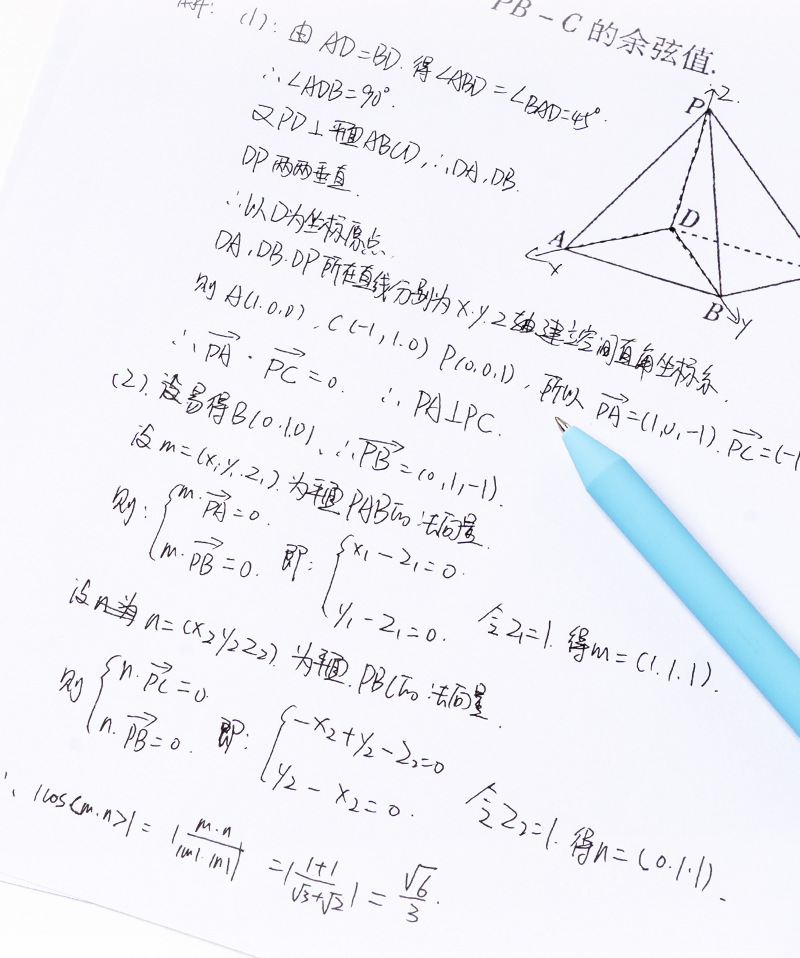 PB-C的余弦值.
解: (1): 由 AD=BD. 得∠ABD=∠BAD=45°.
∴∠ADB=90°.
又PD⊥平面ABCD, ∴DA, DB.
DP两两垂直.
∴以D为坐标原点.
DA, DB. DP所在直线分别为x.y.z轴建立空间直角坐标系.
则A(1.0.0), C(-1,1.0) P(0.0.1), 所以 PA=(1,0,-1). PC=(-1
∴PA·PC=0. ∴PA⊥PC.
(2). 易得B(0.1.0), ∴PB=(0,1,-1).
设m=(x₁y₁.z₁).为平面PAB的法向量.
则: {m·PA=0. m·PB=0. 即: {x₁-z₁=0. y₁-z₁=0. 令z₁=1. 得m=(1.1.1).
设n=(x₂y₂z₂). 为平面PBC的法向量.
则 {n·PC=0. n·PB=0. 即: {-x₂+y₂-z₂=0 y₂-x₂=0. 令z₂=1. 得n=(0.1.1).
∴|cos<m.n>|=|m·n/|m|·|n||=|1+1/√3+√2|=√6/3.
P
z.
D
A
x
B
y